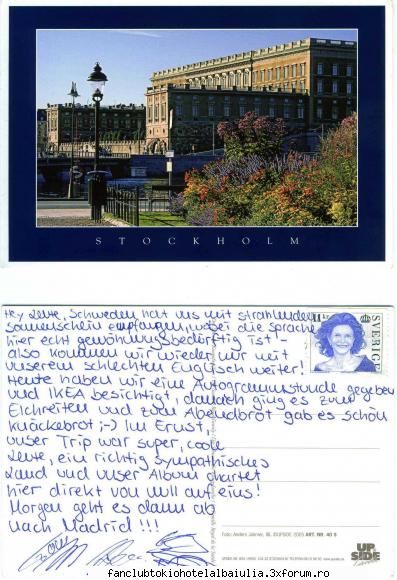 STOCKHOLM
Hey Leute, Schweden hat uns mit strahlendem
Sonnenschein empfangen, wobei die Sprache
hier echt gewöhnungsbedürftig ist! -
also kommen wir wieder nur mit
unserem schlechten Englisch weiter!
Heute haben wir eine Autogrammstunde gegeben
und IKEA besichtigt, danach ging es zum
Elchreiten und zum Abendbrot gab es schön
Knäckebrot ;-) Im Ernst,
unser Trip war super, coole
Leute, ein richtig sympathisches
Land und unser Album chartet
hier direkt von null auf eins!
Morgen geht es dann ab
nach Madrid!!!
11 kr
SVERIGE
ART. NR. 40 S
UP
SIDE
fanclubtokiohotelalbaiulia.3xforum.ro